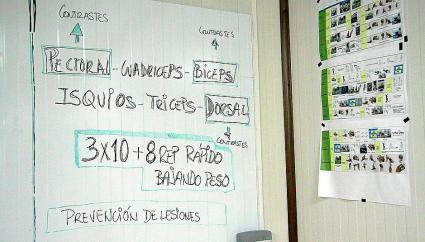 CONTRASTES
CONTRASTES
PECTORAL - CUADRICEPS - BICEPS
ISQUIOS - TRICEPS - DORSAL
CONTRASTES
3x10 + 8 REP RÁPIDO
BAJANDO PESO
PREVENCIÓN DE LESIONES